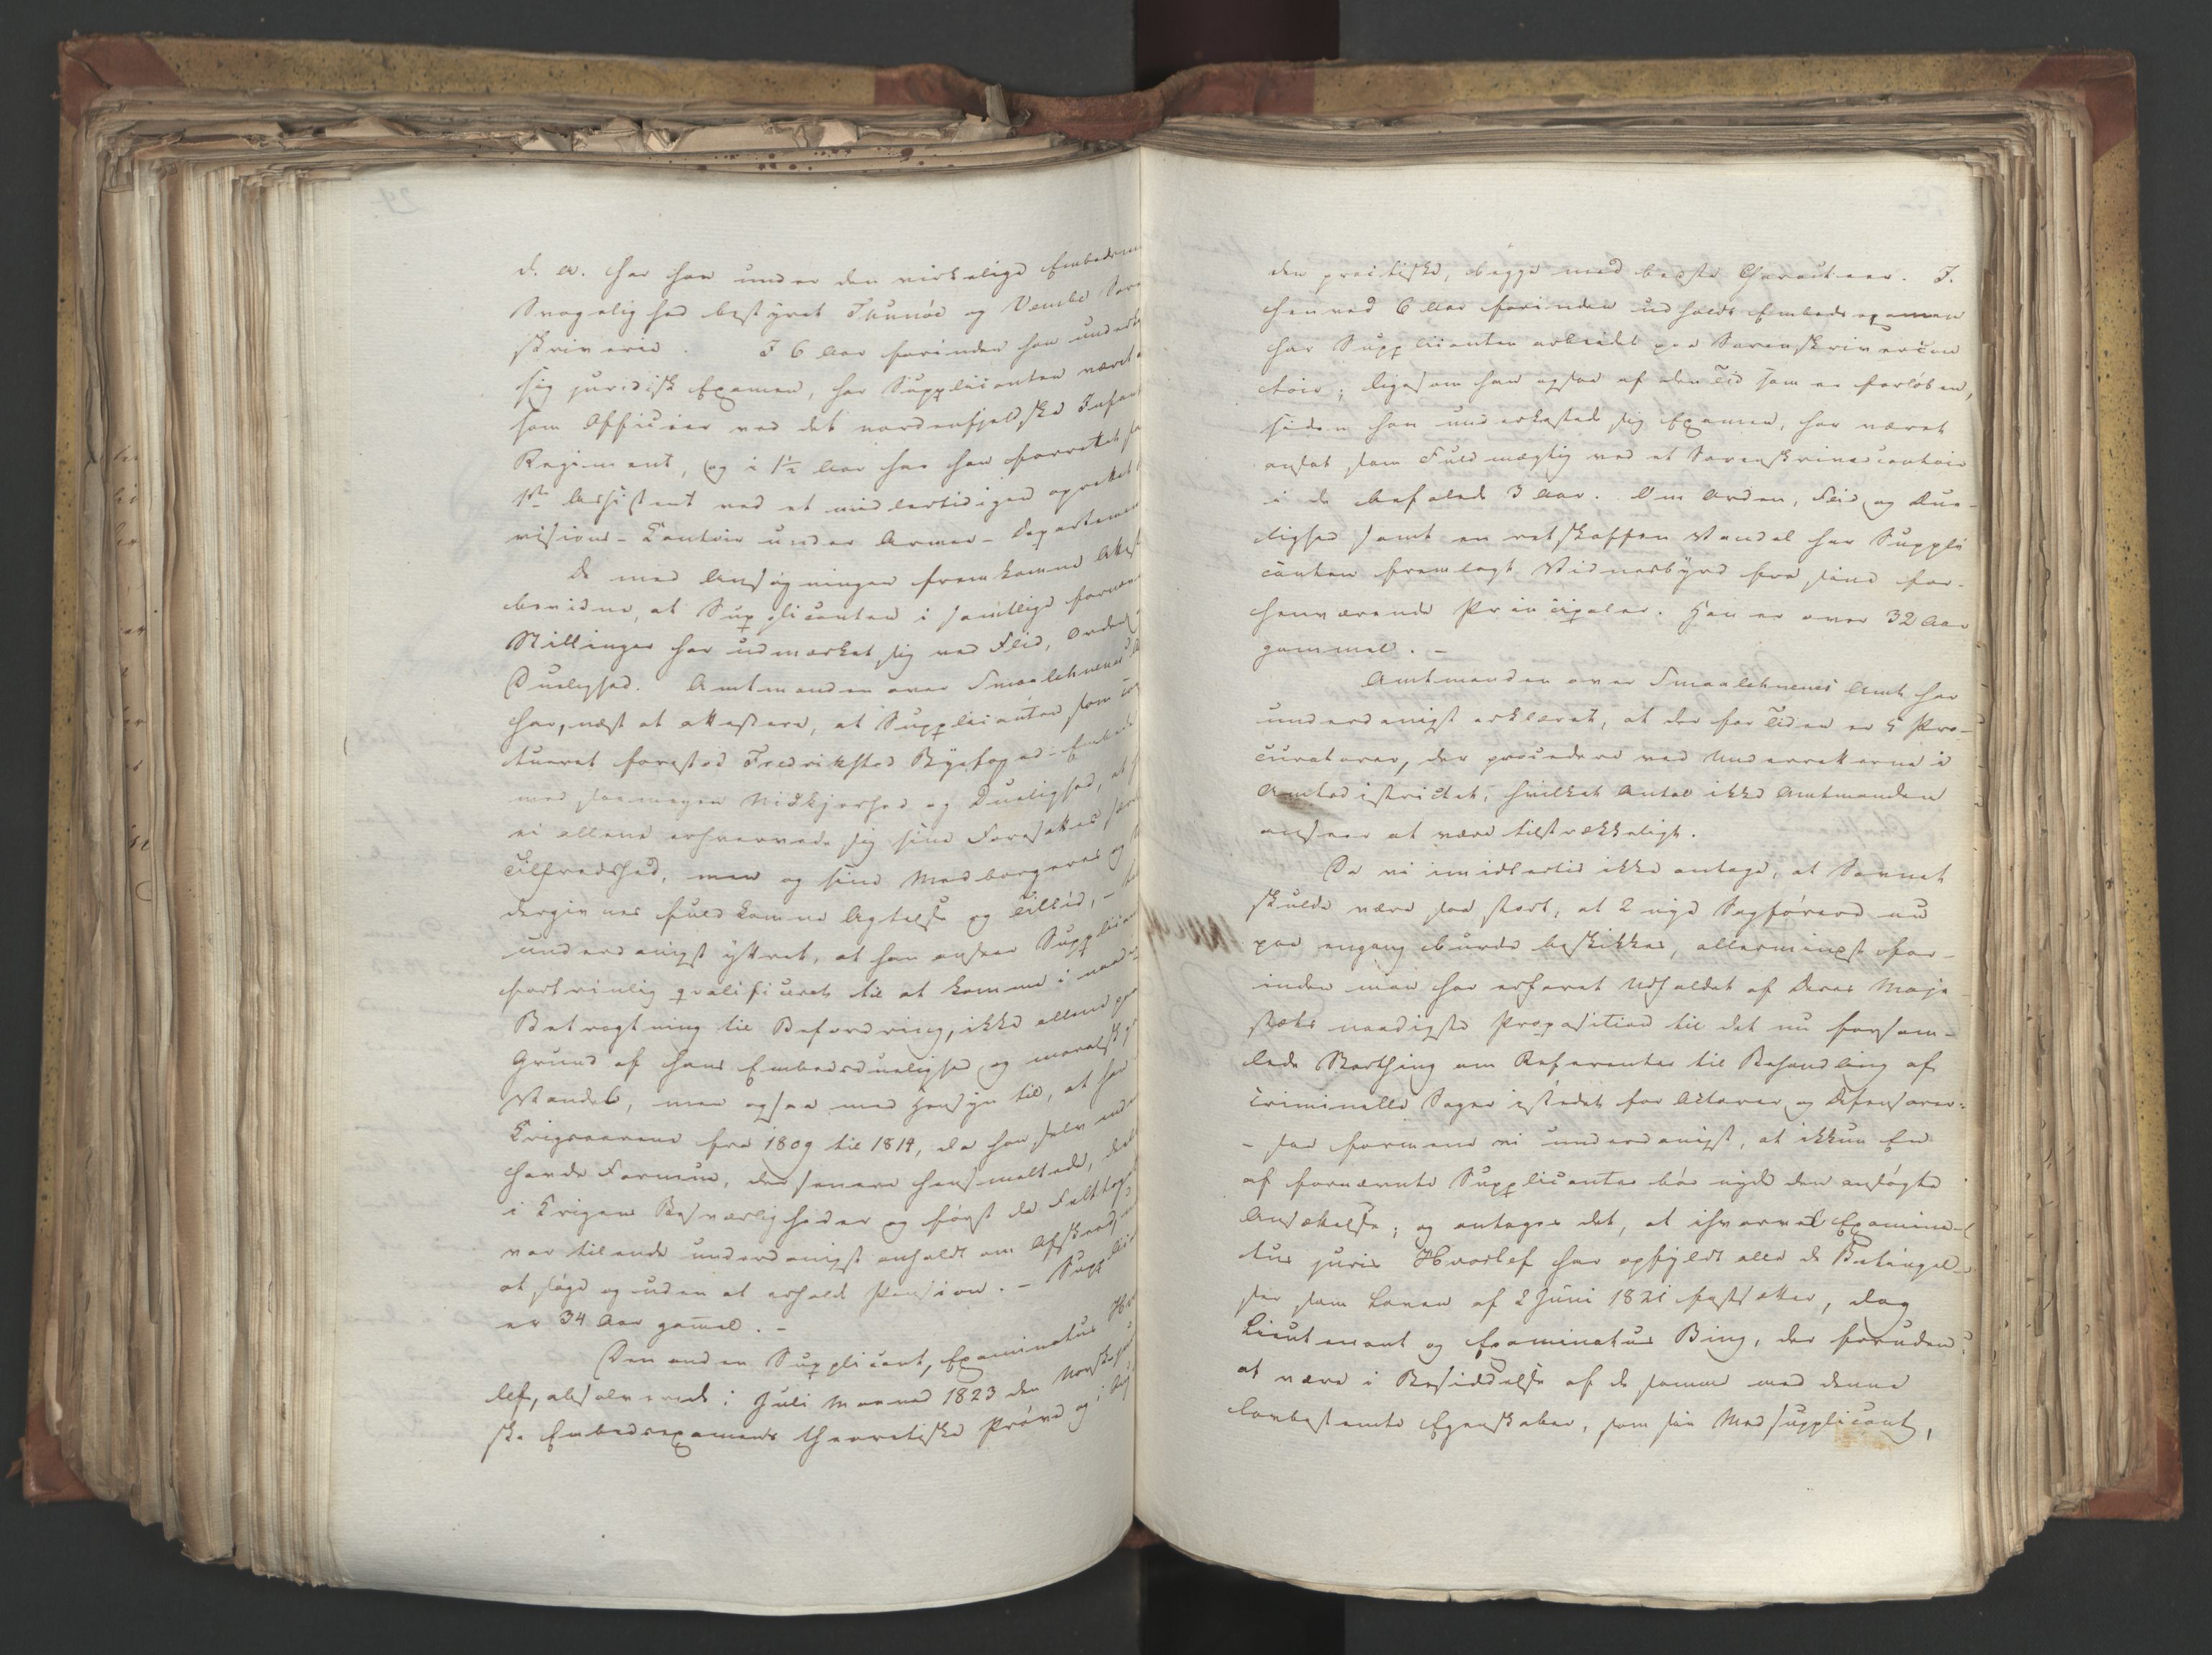 d. A. har han under den virkelige Embedsm
Svagelighed bestyret Thunøe og Vembe Sore
skriverie. I 6 Aar forinden han underk
sig juridisk Examen, har Supplicanten været
som Officier ved det nordenfjeldske Infant
Regiment, og i 1½ Aar har han forrettet so
1ste Assistent ved et midlertidigen oprettet
visions-Contoir under Armee-Departemen
De med Ansøgningen fremkomne Attest
bevidne, at Supplicanten i samtlige fornævn
Stillinger har udmærket sig ved Flid, Orden
Duelighed. Amtmanden over Smaalehnenes
har, næst at attestere, at Supplicanten som
tueret forestod Fredrikstad Byefoged-Embede
med saamegen Nidkjerhed og Duelighed, at
ei allene erhvervede sig sine Foresattes
Tilfredshed, men og sine Medborgeres og
dergivnes fuldkomne Agtelse og Tillid, -
underdanigst yttret, at han anseer Supplican
fortrinlig qvalificeret til at komme i naad
Betragtning til Befordring, ikke allene paa
Grund af hans Embedsduelighed og moralsk
Vandel, men ogsaa med Hensyn til, at han
Krigsaarene fra 1809 til 1814, da han selv
havde Formue, der senere hensmeltede, deel
i Krigens Besværligheder og først da Felttoget
var tilende underdanigst anholdt om Afskeed
at søge og uden at erholde Pension. - Supplic
er 34 Aar gamel. -
Den anden Supplicant, Examinatus Hv
lef, absolverede i Juli Maaned 1823 den Norsk juri
ske Embedsexamens theoretiske Prøve og i
den practiske, begge med bedste Characteer. I
henved 6 Aar forinden udholdt Embedsexamen
har Supplicanten arbeidet paa Sorenskrivercon
toir; ligesom han ogsaa af den Tid som er forløben,
siden han underkasted sig Examen, har været
ansat som Fuldmægtig ved et Sorenskrivercontoir
i de befalede 3 Aar. Om Orden, Flid og Due-
lighed samt en retskaffen Vandel har Suppli
canten fremlagt Vidnesbyrd fra sine for-
henværende Principaler. Han er over 32 Aar
gammel. -
Amtmanden over Smaalehnenes Amt har
underdanigst erklæret, at der for Tiden er 5 Pro-
curatorer, der procedere ved Underretterne i
Amtsdistrictet, hvilket Antal ikke Amtmanden
anseer at være tilstrækkeligt.
Da vi imidlertid ikke antage, at Savnet
skulde være saa stort, at 2 nye Sagførere nu
paa engang burde beskikkes, allermindst for-
inden man har erfaret Udfaldet af Deres Maje
stæts naadigste Proposition til det nu forsam-
lede Storthing om Referenter til Behandling af
criminelle Sager istedet for Actorer og Defensorer
- saa formene vi underdanigst, at ikkun En
af fornævnte Supplicanter bør nyde den ansøgte
Ansættelse; og antages det, at ihvorvel Examina-
tus juris Hvoslef har opfyldt alle de Betingel-
ser som Loven af 2 Juni 1821 fastsætter, dog
Lieutenant og Examinatus Bing, der foruden
at være i Besiddelse af de samme med denne
lovbestemte Egenskaber, som sin Medsupplicant,